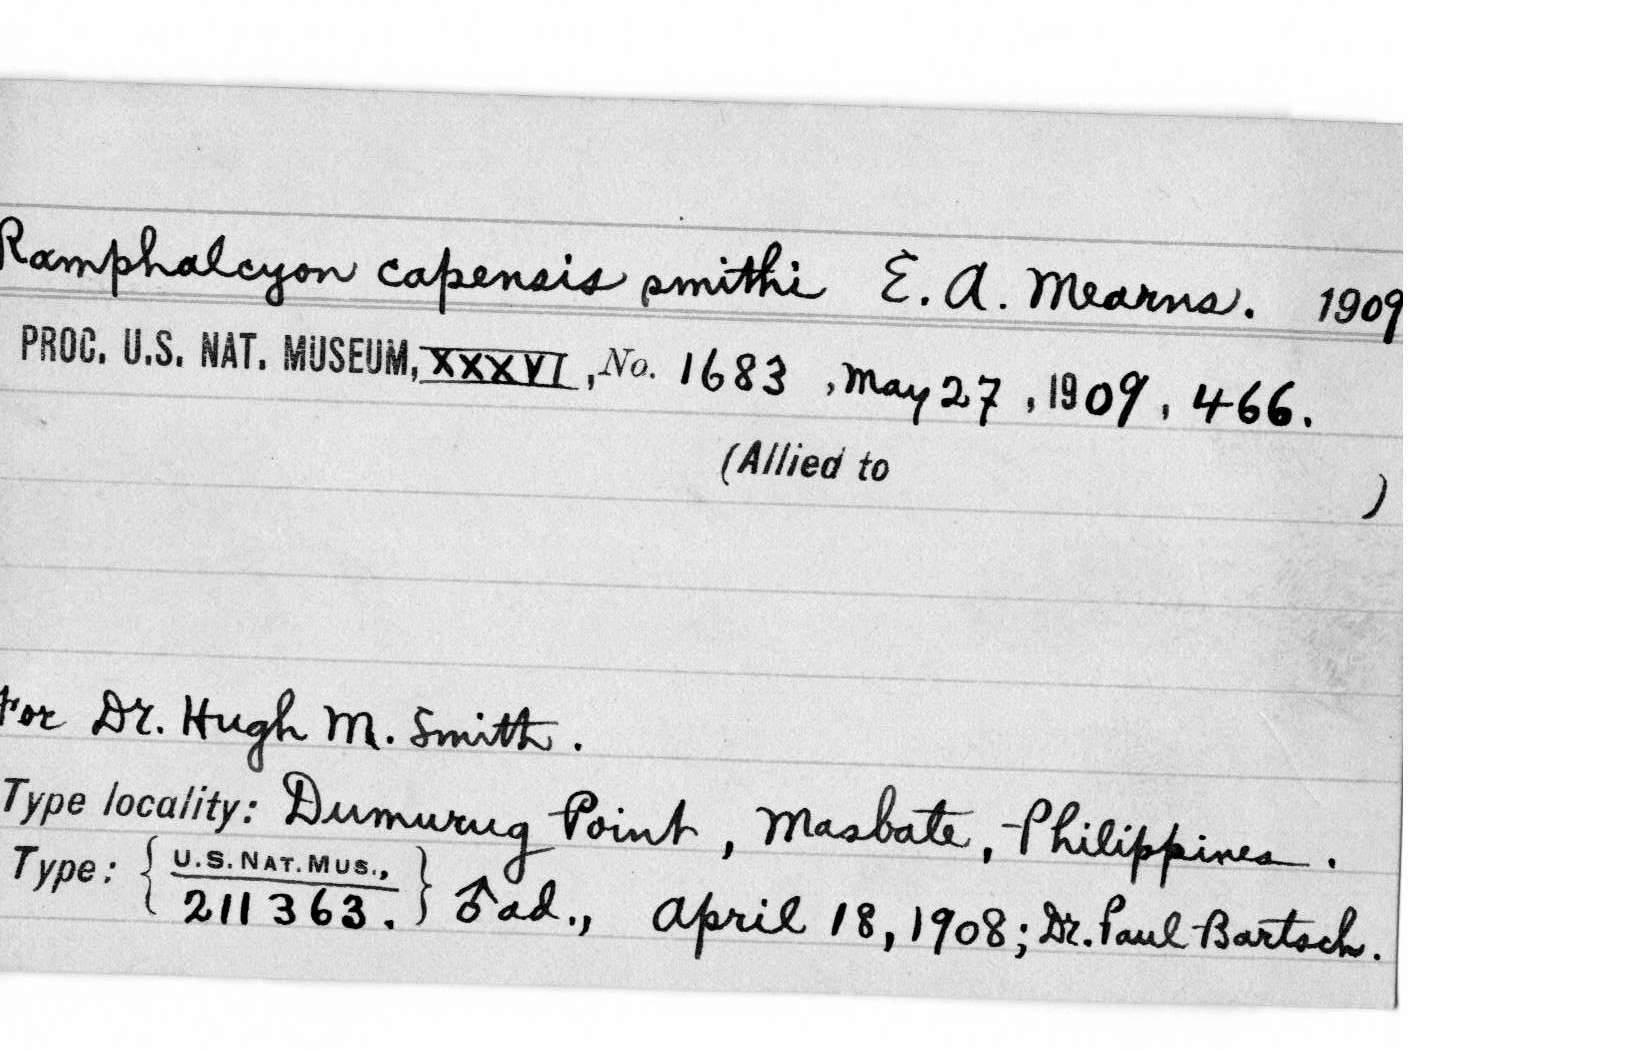 Ramphalcyon capensis smithi E. A. Mearns. 1909
PROC. U.S. NAT. MUSEUM, XXXVI, No. 1683, May 27, 1909, 466.
(Allied to )
For Dr. Hugh M. Smith.
Type locality: Dumurug Point, Masbate, Philippines.
Type: { U.S. NAT. MUS., 211363. } ♂ ad., April 18, 1908; Dr. Paul Bartsch.